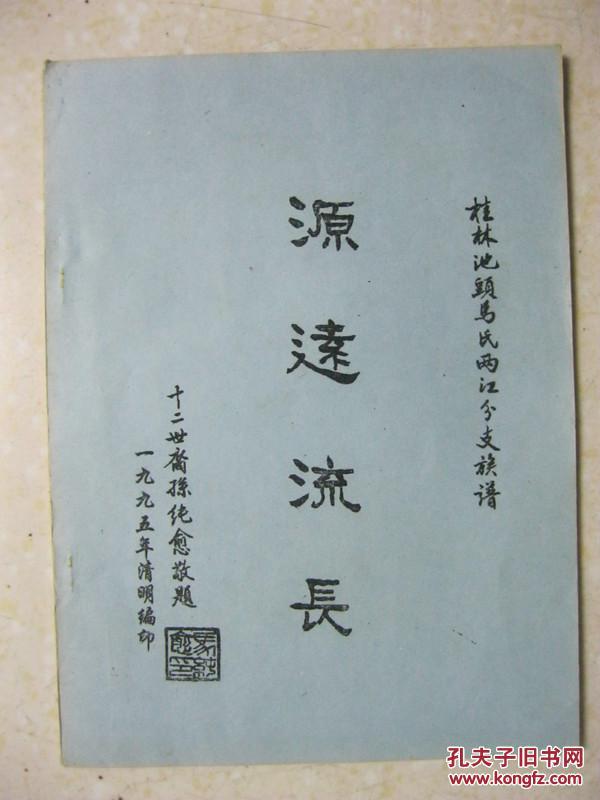 桂林池頭馬氏两江分支族譜
源遠流長
十二世裔孫純愈敬題
一九九五年清明編印
馬純愈印
孔夫子旧书网
www.kongfz.com